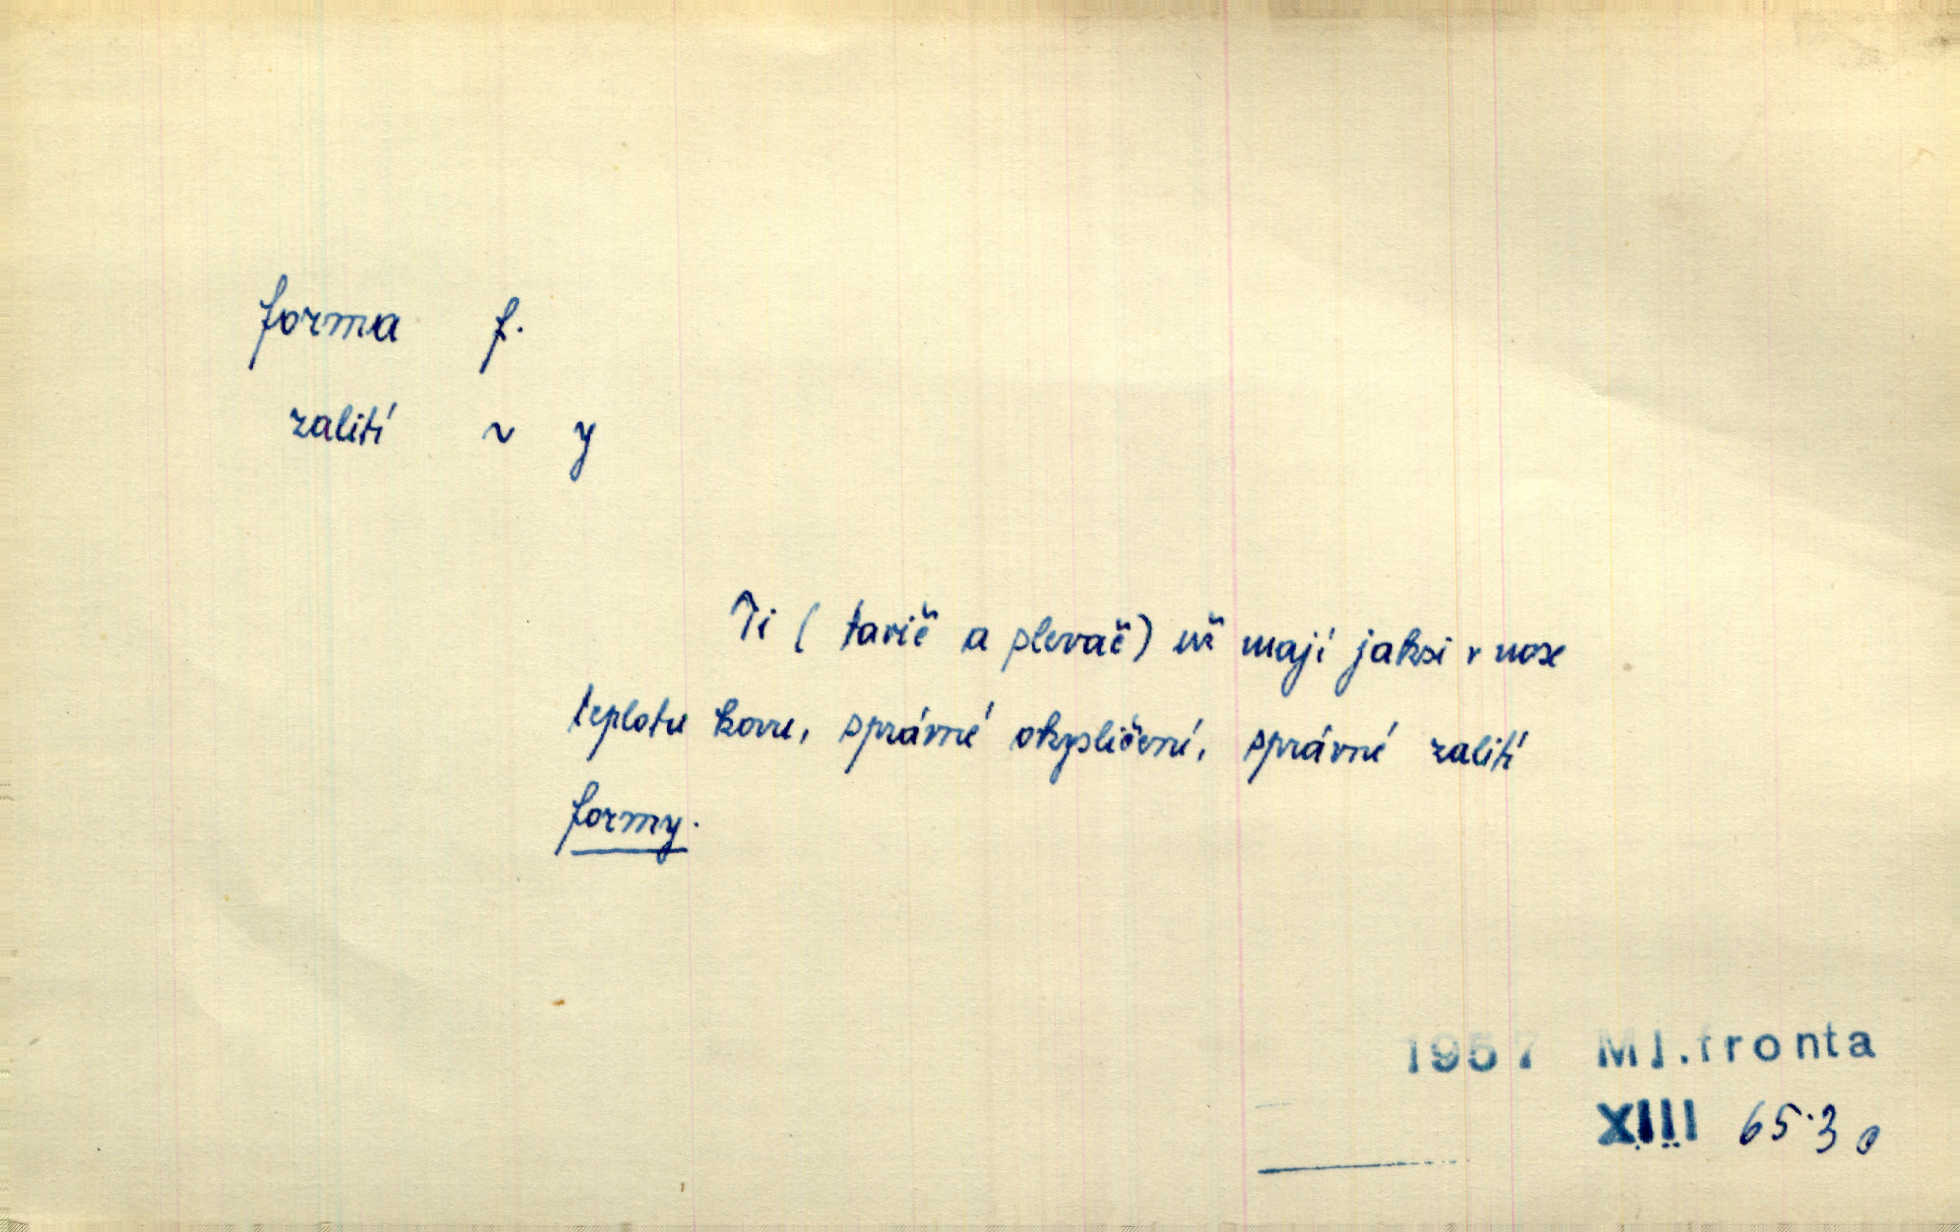 forma f.
zalití ~ y
Ti ( tavič a slevač) už mají jaksi v nose
teplotu kovu, správné okysličení, správné zalití
formy.
1957 Ml.fronta
XIII 65.3